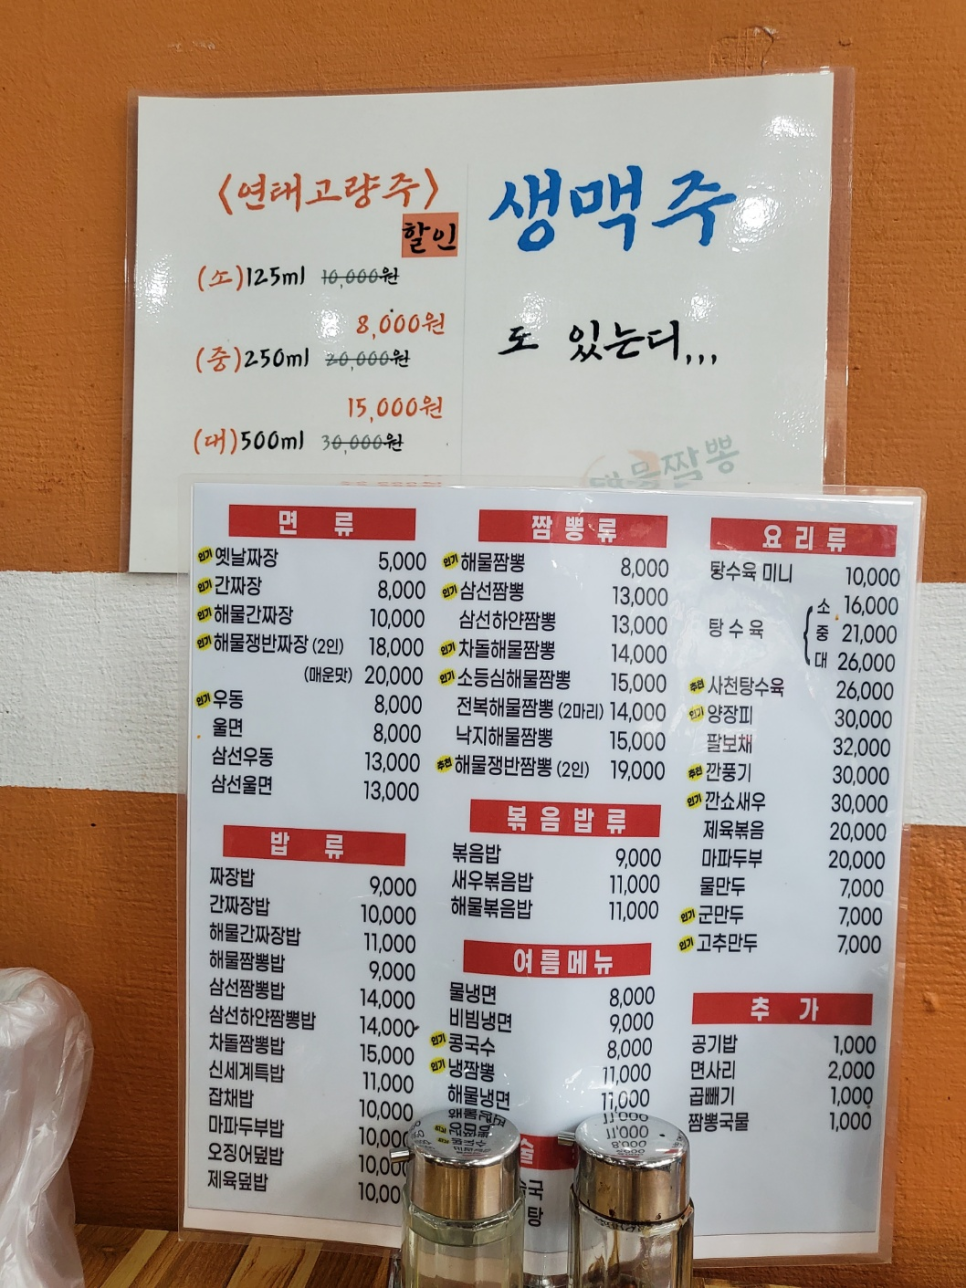 〈연태고량주〉
할인
(소)125ml 10,000원
8,000원
(중)250ml 20,000원
15,000원
(대)500ml 30,000원
생맥주
도 있는디,,,
짬뽕
면 류
인기 옛날짜장 5,000
인기 간짜장 8,000
인기 해물간짜장 10,000
인기 해물쟁반짜장 (2인) 18,000
(매운맛) 20,000
인기 우동 8,000
울면 8,000
삼선우동 13,000
삼선울면 13,000
밥 류
짜장밥 9,000
간짜장밥 10,000
해물간짜장밥 11,000
해물짬뽕밥 9,000
삼선짬뽕밥 14,000
삼선하얀짬뽕밥 14,000
차돌짬뽕밥 15,000
신세계특밥 11,000
잡채밥 10,000
마파두부밥 10,000
오징어덮밥
제육덮밥
짬 뽕 류
인기 해물짬뽕 8,000
인기 삼선짬뽕 13,000
삼선하얀짬뽕 13,000
인기 차돌해물짬뽕 14,000
인기 소등심해물짬뽕 15,000
전복해물짬뽕 (2마리) 14,000
낙지해물짬뽕 15,000
추천 해물쟁반짬뽕 (2인) 19,000
볶 음 밥 류
볶음밥 9,000
새우볶음밥 11,000
해물볶음밥 11,000
여름메뉴
물냉면 8,000
비빔냉면 9,000
인기 콩국수 8,000
인기 냉짬뽕 11,000
해물냉면 11,000
술
국
탕
요 리 류
탕수육 미니 10,000
탕 수 육
소 16,000
중 21,000
대 26,000
추천 사천탕수육 26,000
인기 양장피 30,000
팔보채 32,000
추천 깐풍기 30,000
인기 깐쇼새우 30,000
제육볶음 20,000
마파두부 20,000
물만두 7,000
인기 군만두 7,000
인기 고추만두 7,000
추 가
공기밥 1,000
면사리 2,000
곱빼기 1,000
짬뽕국물 1,000